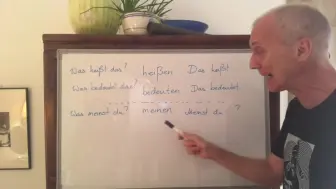 Was heißt das? heißen Das heißt
Was bedeutet das? bedeuten Das bedeutet
Was meinst du? meinen Meinst du ?